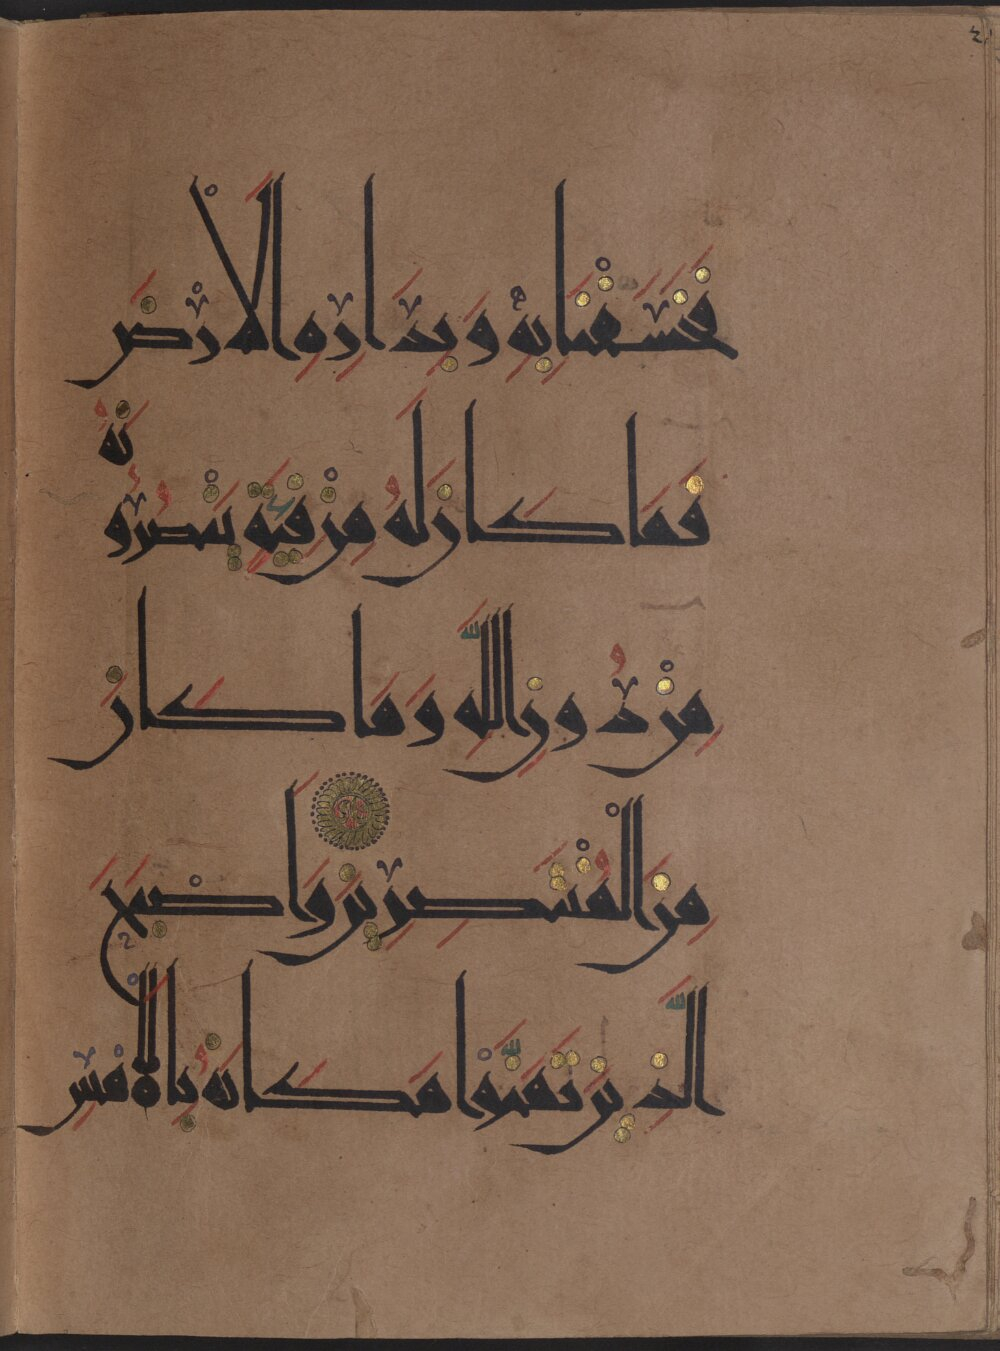 فَخَسَفْنَا بِهِ وَبِدَارِهِ الْأَرْضَ
فَمَا كَانَ لَهُ مِنْ فِئَةٍ يَنْصُرُونَهُ
مِنْ دُونِ اللَّهِ وَمَا كَانَ
مِنَ الْمُنْتَصِرِينَ وَأَصْبَحَ
الَّذِينَ تَمَنَّوْا مَكَانَهُ بِالْأَمْسِ